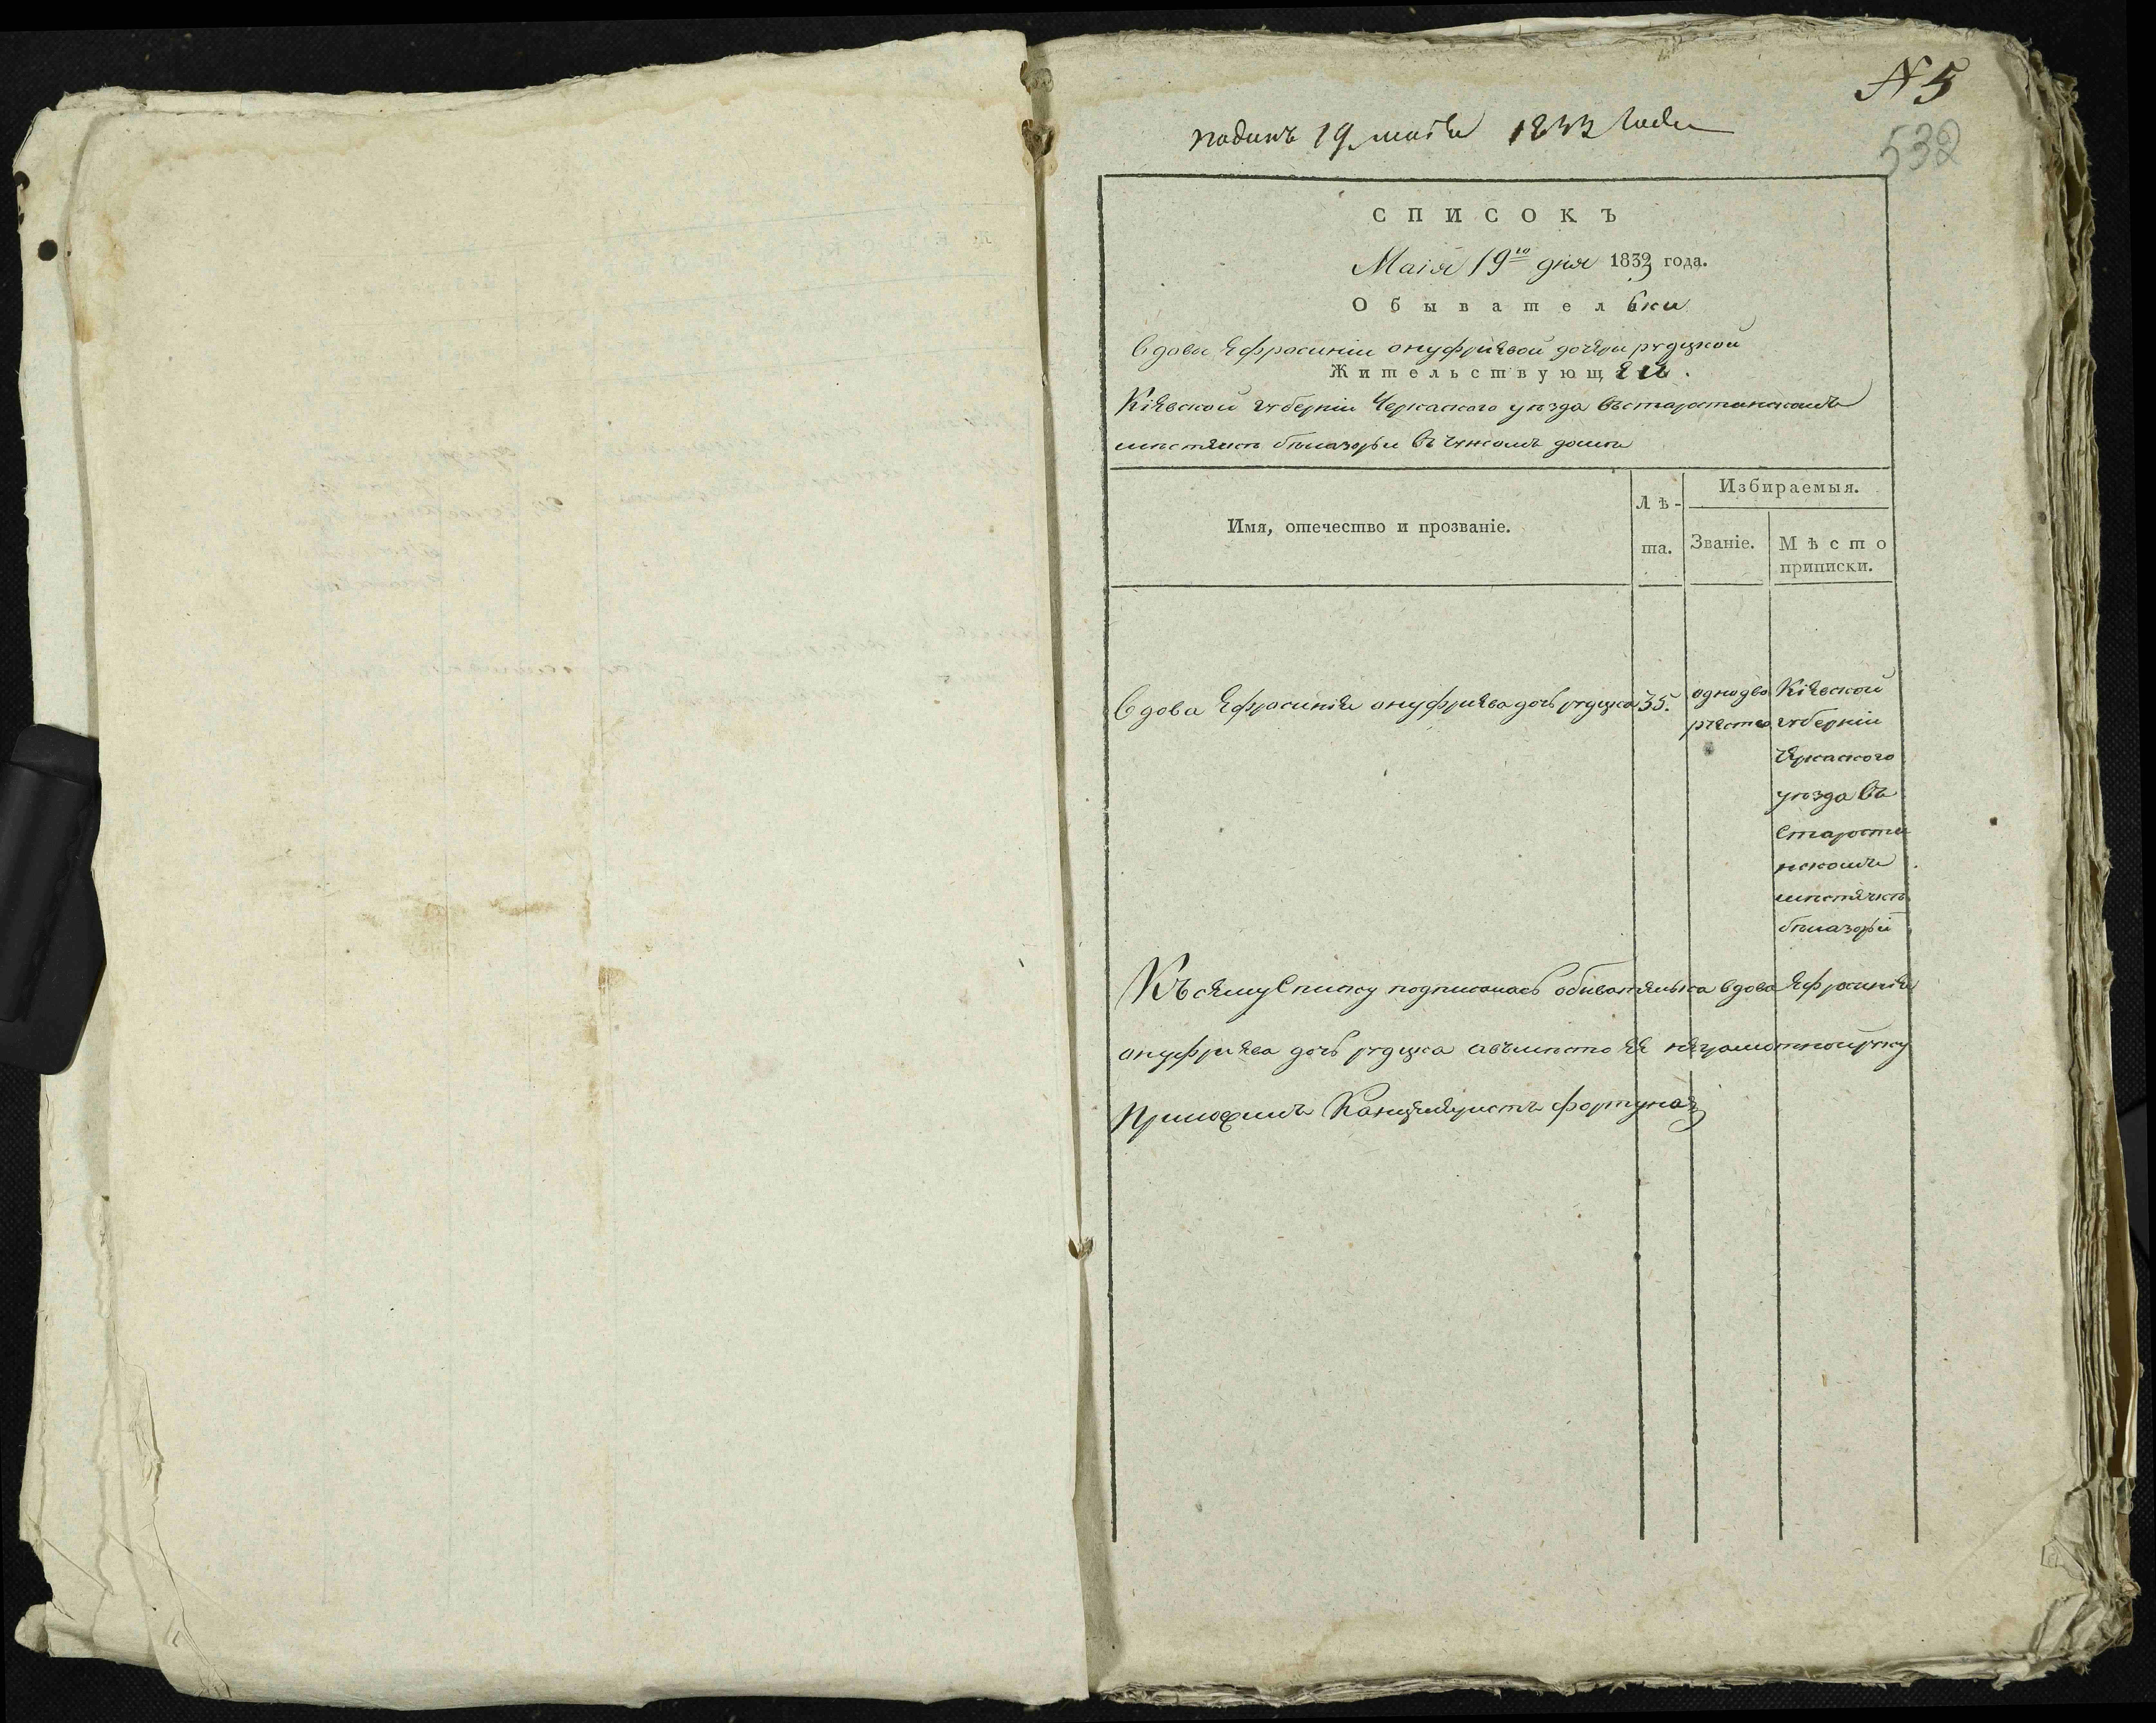 N 5
532
поданъ 19 маія 1833 года
СПИСОКЪ
Маія 19го дня 1833 года.
Обывательки
вдовы Ефросиніи онуфріевой дочери рудцкой
Жительствующей.
Кіевской губерніи Черкаского уезда въ старостинскомъ
мѣстечкѣ бѣлазорьи въ чужомъ доме
Имя, отечество и прозваніе.
Лѣ-
та.
Избираемыя.
Званіе.
Мѣсто
приписки.
Вдова Ефросинія онуфріева дочь рудцка
35.
однодво
рество
Кіевской
губерніи
Черкаского
уезда въ
Старости
нскомъ
мѣстечкѣ
бѣлазорьи
Къ сему Списку подписалась обивателька вдова Ефросинія
онуфріева дочь рудцка авъмѣсто ее неграмотной руку
Приложилъ Канцеляристъ фортуна